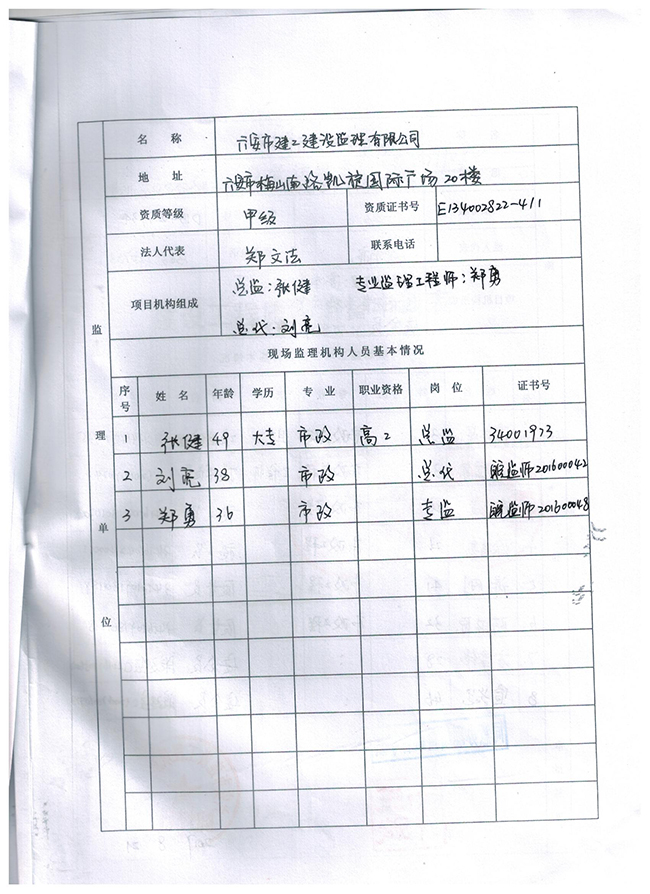 监理单位
名 称 六安市建工建设监理有限公司
地 址 六安市梅山南路凯旋国际广场20楼
资质等级 甲级 资质证书号 E134002822-411
法人代表 郑文法 联系电话
项目机构组成 总监:张健 专业监理工程师:郑勇
总代:刘亮
现场监理机构人员基本情况
序号 姓 名 年龄 学历 专 业 职业资格 岗 位 证书号
1 张健 49 大专 市政 高工 总监 34001973
2 刘亮 38 市政 总代 皖监师201600042
3 郑勇 36 市政 专监 皖监师201600048